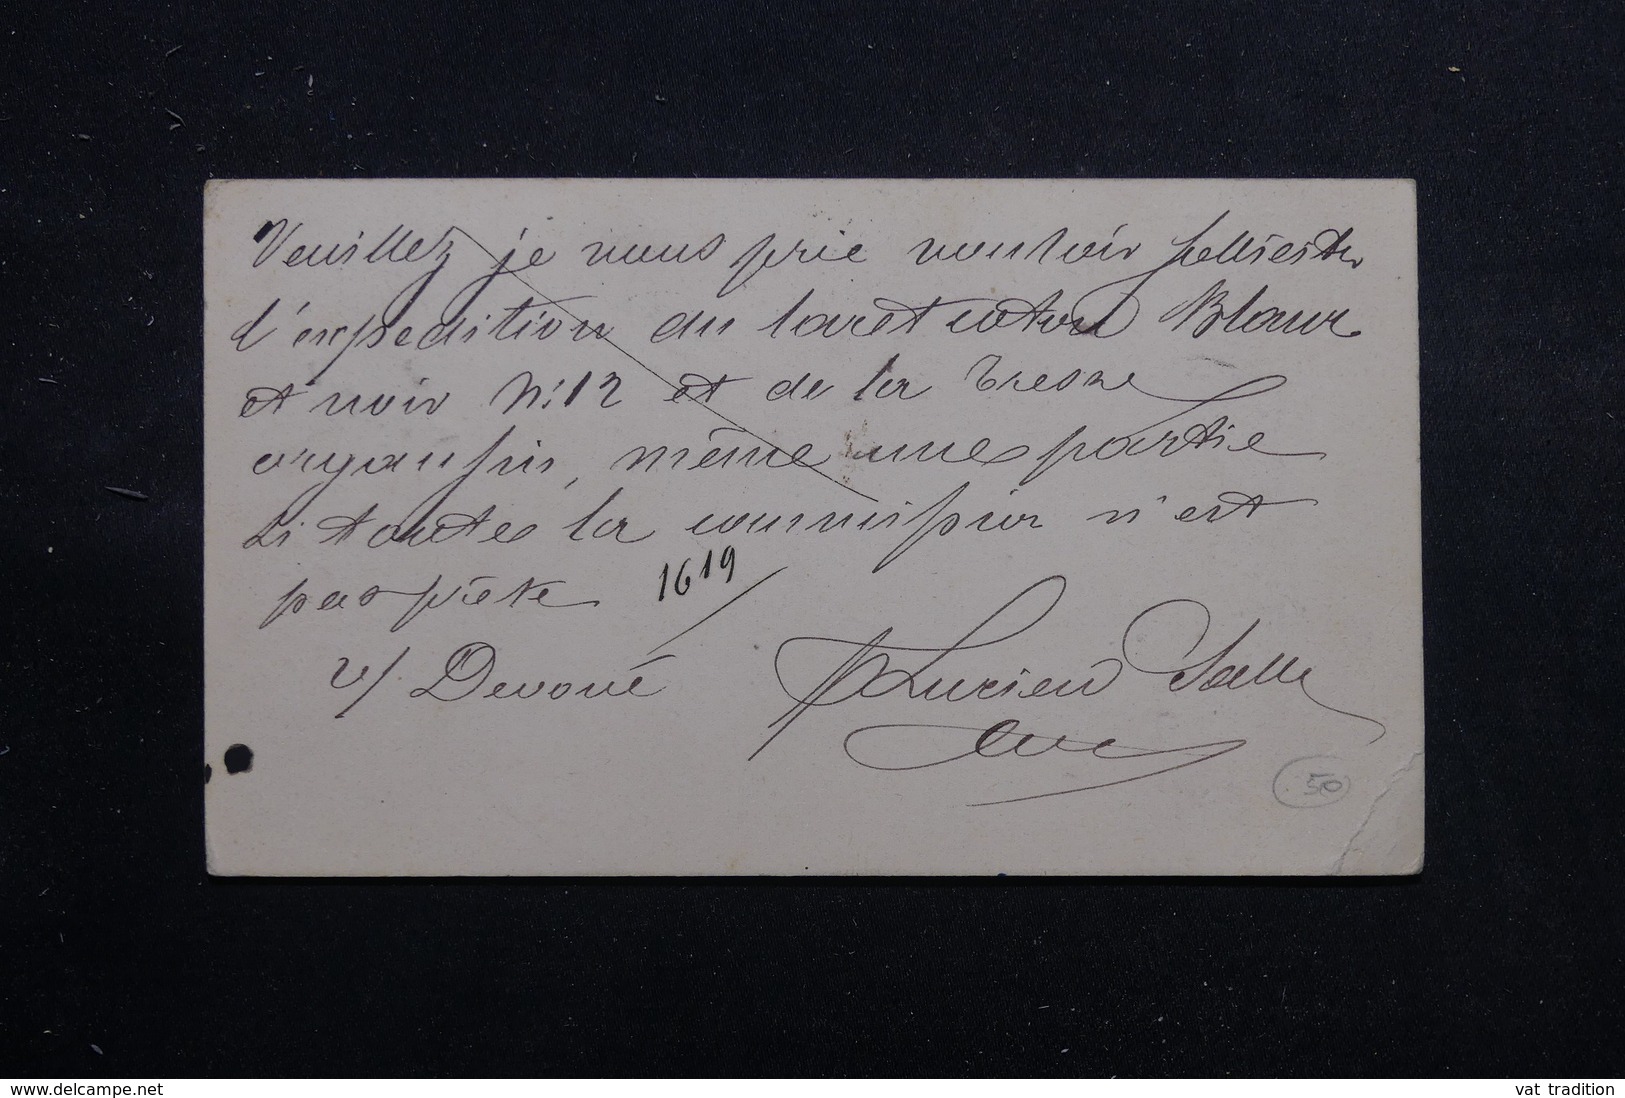 Veuillez je vous prie vouloir
l'expedition du lacet coton Blanc
et noir N: 12 et de la Tresse
même une partie
si toutes la commission n'est
pas prête
1619
v/ Devoué Lucien
50
www.delcampe.net
vat tradition